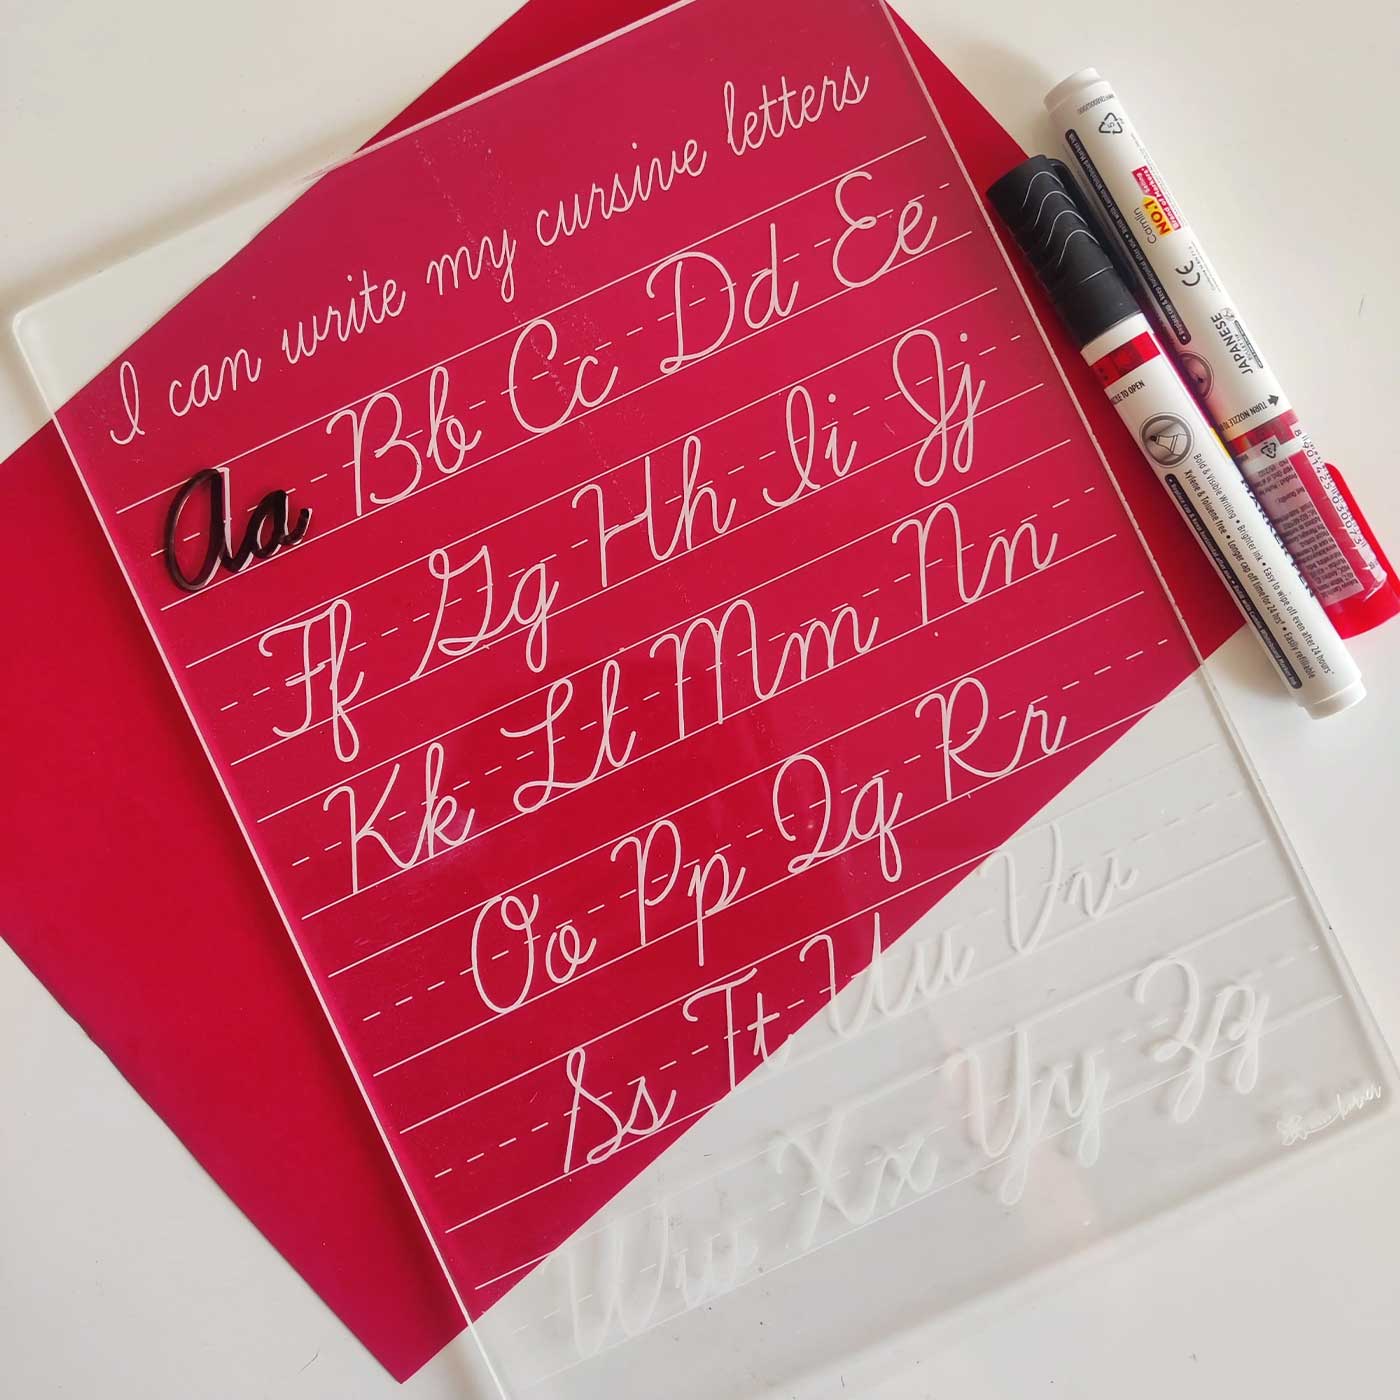 I can write my cursive letters
Aa Bb Cc Dd Ee
Ff Gg Hh Ii Jj
Kk Ll Mm Nn
Oo Pp Qq Rr
Ss Tt Uu Vv
Ww Xx Yy Zz
Camlin
NO.1
Selling
JAPANESE
TURN NOZZLE
NOZZLE TO OPEN
Bold & Visible Writing • Brighter ink • Easy to wipe off even after 24 hours*
Xylene & Toluene free • Longer cap off time for 24 hrs† • Easily refillable